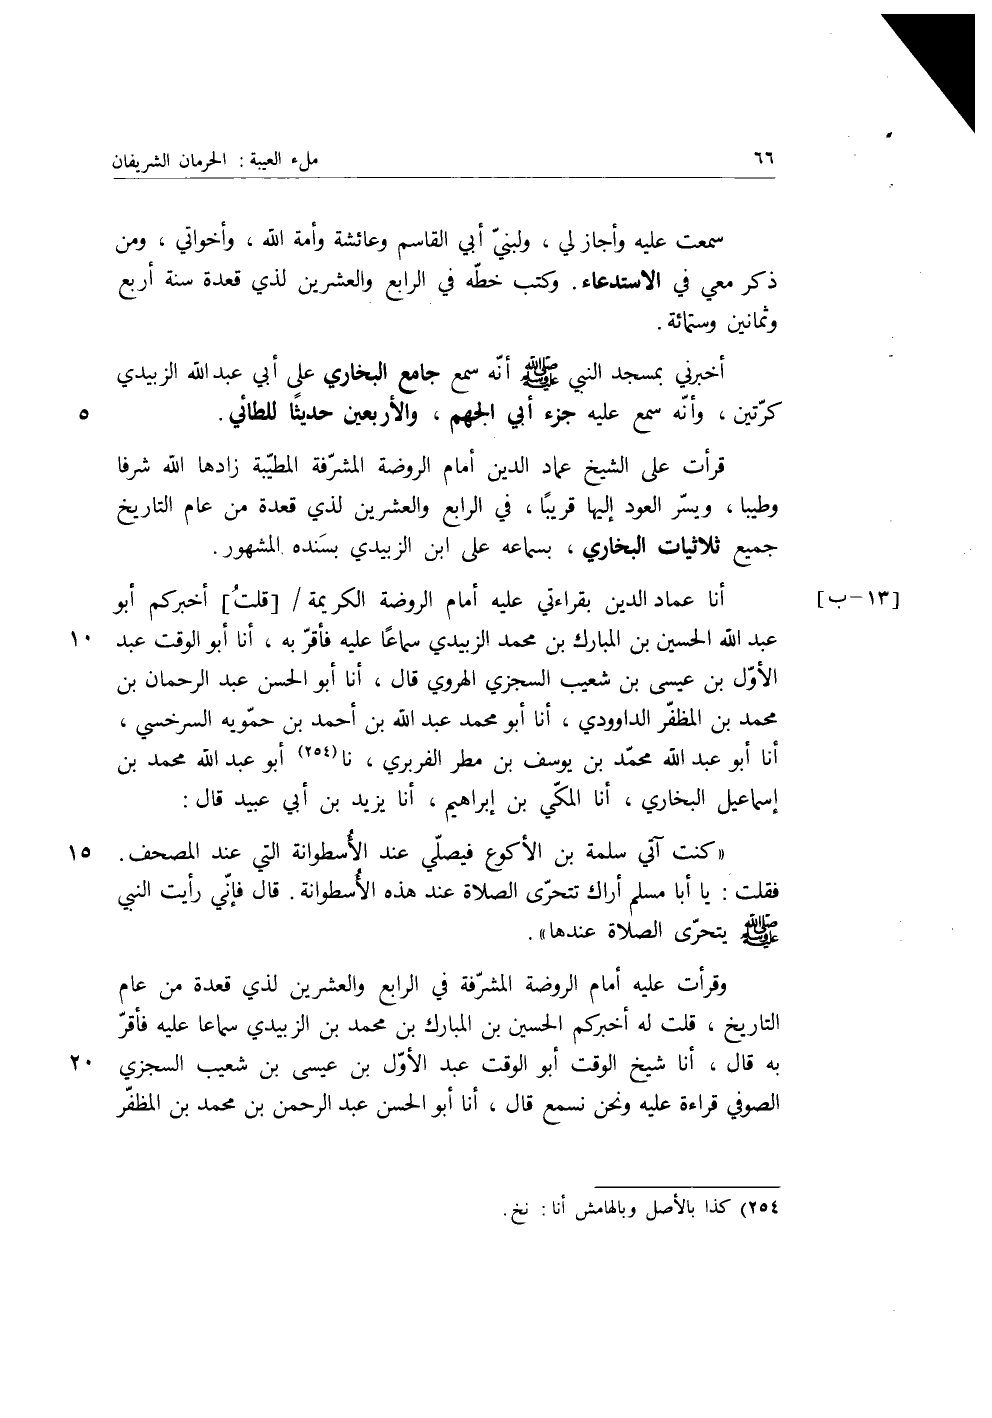 ٦٦ ملء العيبة : الحرمان الشريفان
سمعت عليه وأجاز لي ، ولبنيّ أبي القاسم وعائشة وأمة الله ، وأخواتي ، ومن
ذكر معي في الاستدعاء . وكتب خطّه في الرابع والعشرين لذي قعدة سنة أربع
وثمانين وستمائة .
أخبرني بمسجد النبي ﷺ أنّه سمع جامع البخاري على أبي عبد الله الزبيدي
كرّتين ، وأنّه سمع عليه جزء أبي الجهم ، والأربعين حديثًا للطائي . ٥
قرأت على الشيخ عماد الدين أمام الروضة المشرّفة المطيّبة زادها الله شرفا
وطيبا ، ويسّر العود إليها قريبًا ، في الرابع والعشرين لذي قعدة من عام التاريخ
جميع ثلاثيات البخاري ، بسماعه على ابن الزبيدي بسَنده المشهور .
[١٣-ب] أنا عماد الدين بقراءتي عليه أمام الروضة الكريمة / [قلتُ] أخبركم أبو
عبد الله الحسين بن المبارك بن محمد الزبيدي سماعًا عليه فأقرّ به ، أنا أبو الوقت عبد ١٠
الأوّل بن عيسى بن شعيب السجزي الهروي قال ، أنا أبو الحسن عبد الرحمان بن
محمد بن المظفّر الداوودي ، أنا أبو محمد عبد الله بن أحمد بن حمّويه السرخسي ،
أنا أبو عبد الله محمّد بن يوسف بن مطر الفربري ، نا(٢٥٤) أبو عبد الله محمد بن
إسماعيل البخاري ، أنا المكّي بن إبراهيم ، أنا يزيد بن أبي عبيد قال :
«كنت آتي سلمة بن الأكوع فيصلّي عند الأُسطوانة التي عند المصحف . ١٥
فقلت : يا أبا مسلم أراك تتحرّى الصلاة عند هذه الأُسطوانة . قال فإنّي رأيت النبي
ﷺ يتحرّى الصلاة عندها» .
وقرأت عليه أمام الروضة المشرّفة في الرابع والعشرين لذي قعدة من عام
التاريخ ، قلت له أخبركم الحسين بن المبارك بن محمد بن الزبيدي سماعا عليه فأقرّ
به قال ، أنا شيخ الوقت أبو الوقت عبد الأوّل بن عيسى بن شعيب السجزي ٢٠
الصوفي قراءة عليه ونحن نسمع قال ، أنا أبو الحسن عبد الرحمن بن محمد بن المظفّر
٢٥٤) كذا بالأصل وبالهامش أنا : نخ .